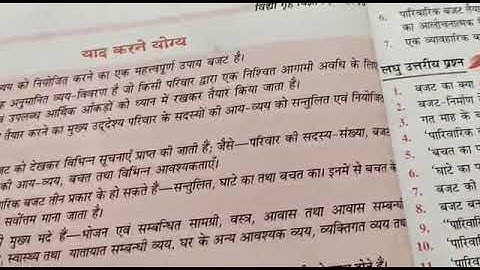 विद्या गृह विज्ञान
याद करने योग्य
व्यय को नियोजित करने का एक महत्त्वपूर्ण उपाय बजट है।
अनुमानित व्यय-विवरण है जो किसी परिवार द्वारा एक निश्चित आगामी अवधि के लिए
उपलब्ध आर्थिक आँकड़ों को ध्यान में रखकर तैयार किया जाता है।
तैयार करने का मुख्य उद्देश्य परिवार के सदस्यों की आय-व्यय को सन्तुलित एवं नियोजित
बजट को देखकर विभिन्न सूचनाएँ प्राप्त की जाती हैं; जैसे—परिवार की सदस्य-संख्या,
की आय-व्यय, बचत तथा विभिन्न आवश्यकताएँ।
बजट तीन प्रकार के हो सकते हैं—सन्तुलित, घाटे का तथा बचत का। इनमें से बचत के
सर्वोत्तम माना जाता है।
मुख्य मदें हैं—भोजन एवं सम्बन्धित सामग्री, वस्त्र, आवास तथा आवास सम्बन्धी
स्वास्थ्य तथा यातायात सम्बन्धी व्यय, घर के अन्य आवश्यक व्यय, व्यक्तिगत व्यय तथा
6. पारिवारिक बजट
का आलोचनात्मक
7. एक व्यावहारिक
लघु उत्तरीय प्रश्न
1. बजट का क्या
2. बजट-निर्माण
3. गत माह के
4. 'पारिवारिक
5. 'बचत का
6. 'घाटे का
7. बजट की
8. बचत
9. "पारिवा
10. 'पारि
11. पारि